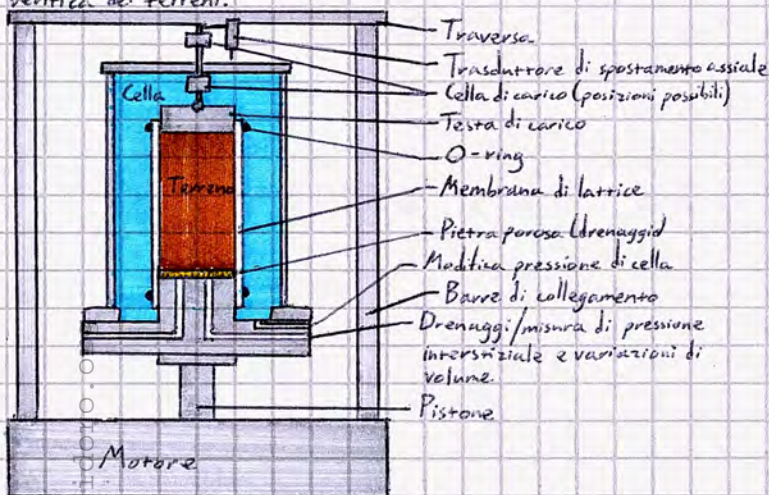 verifica dei terreni.
Traversa
Trasduttore di spostamento assiale
Cella di carico (posizioni possibili)
Testa di carico
O-ring
Membrana di lattice
Pietra porosa (drenaggi)
Modifica pressione di cella
Barre di collegamento
Drenaggi/misura di pressione
interstiziale e variazioni di
volume.
Pistone
Cella
Terreno
Motore